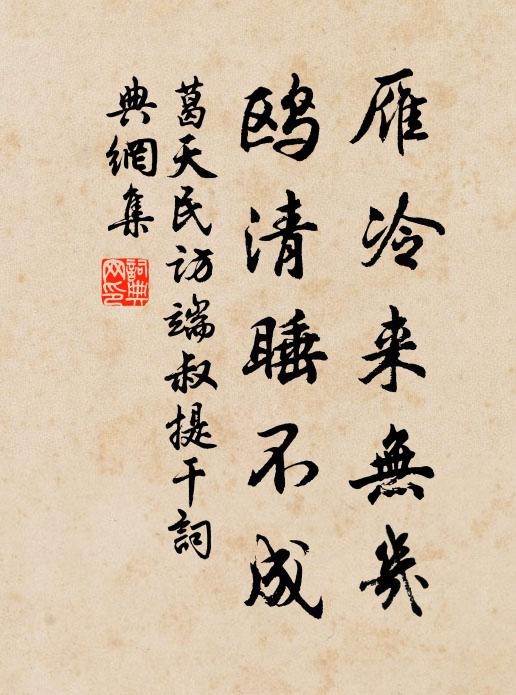 雁冷来無幾
鸥清睡不成
葛天民访端叔提干詞
典網集
詞典
网印